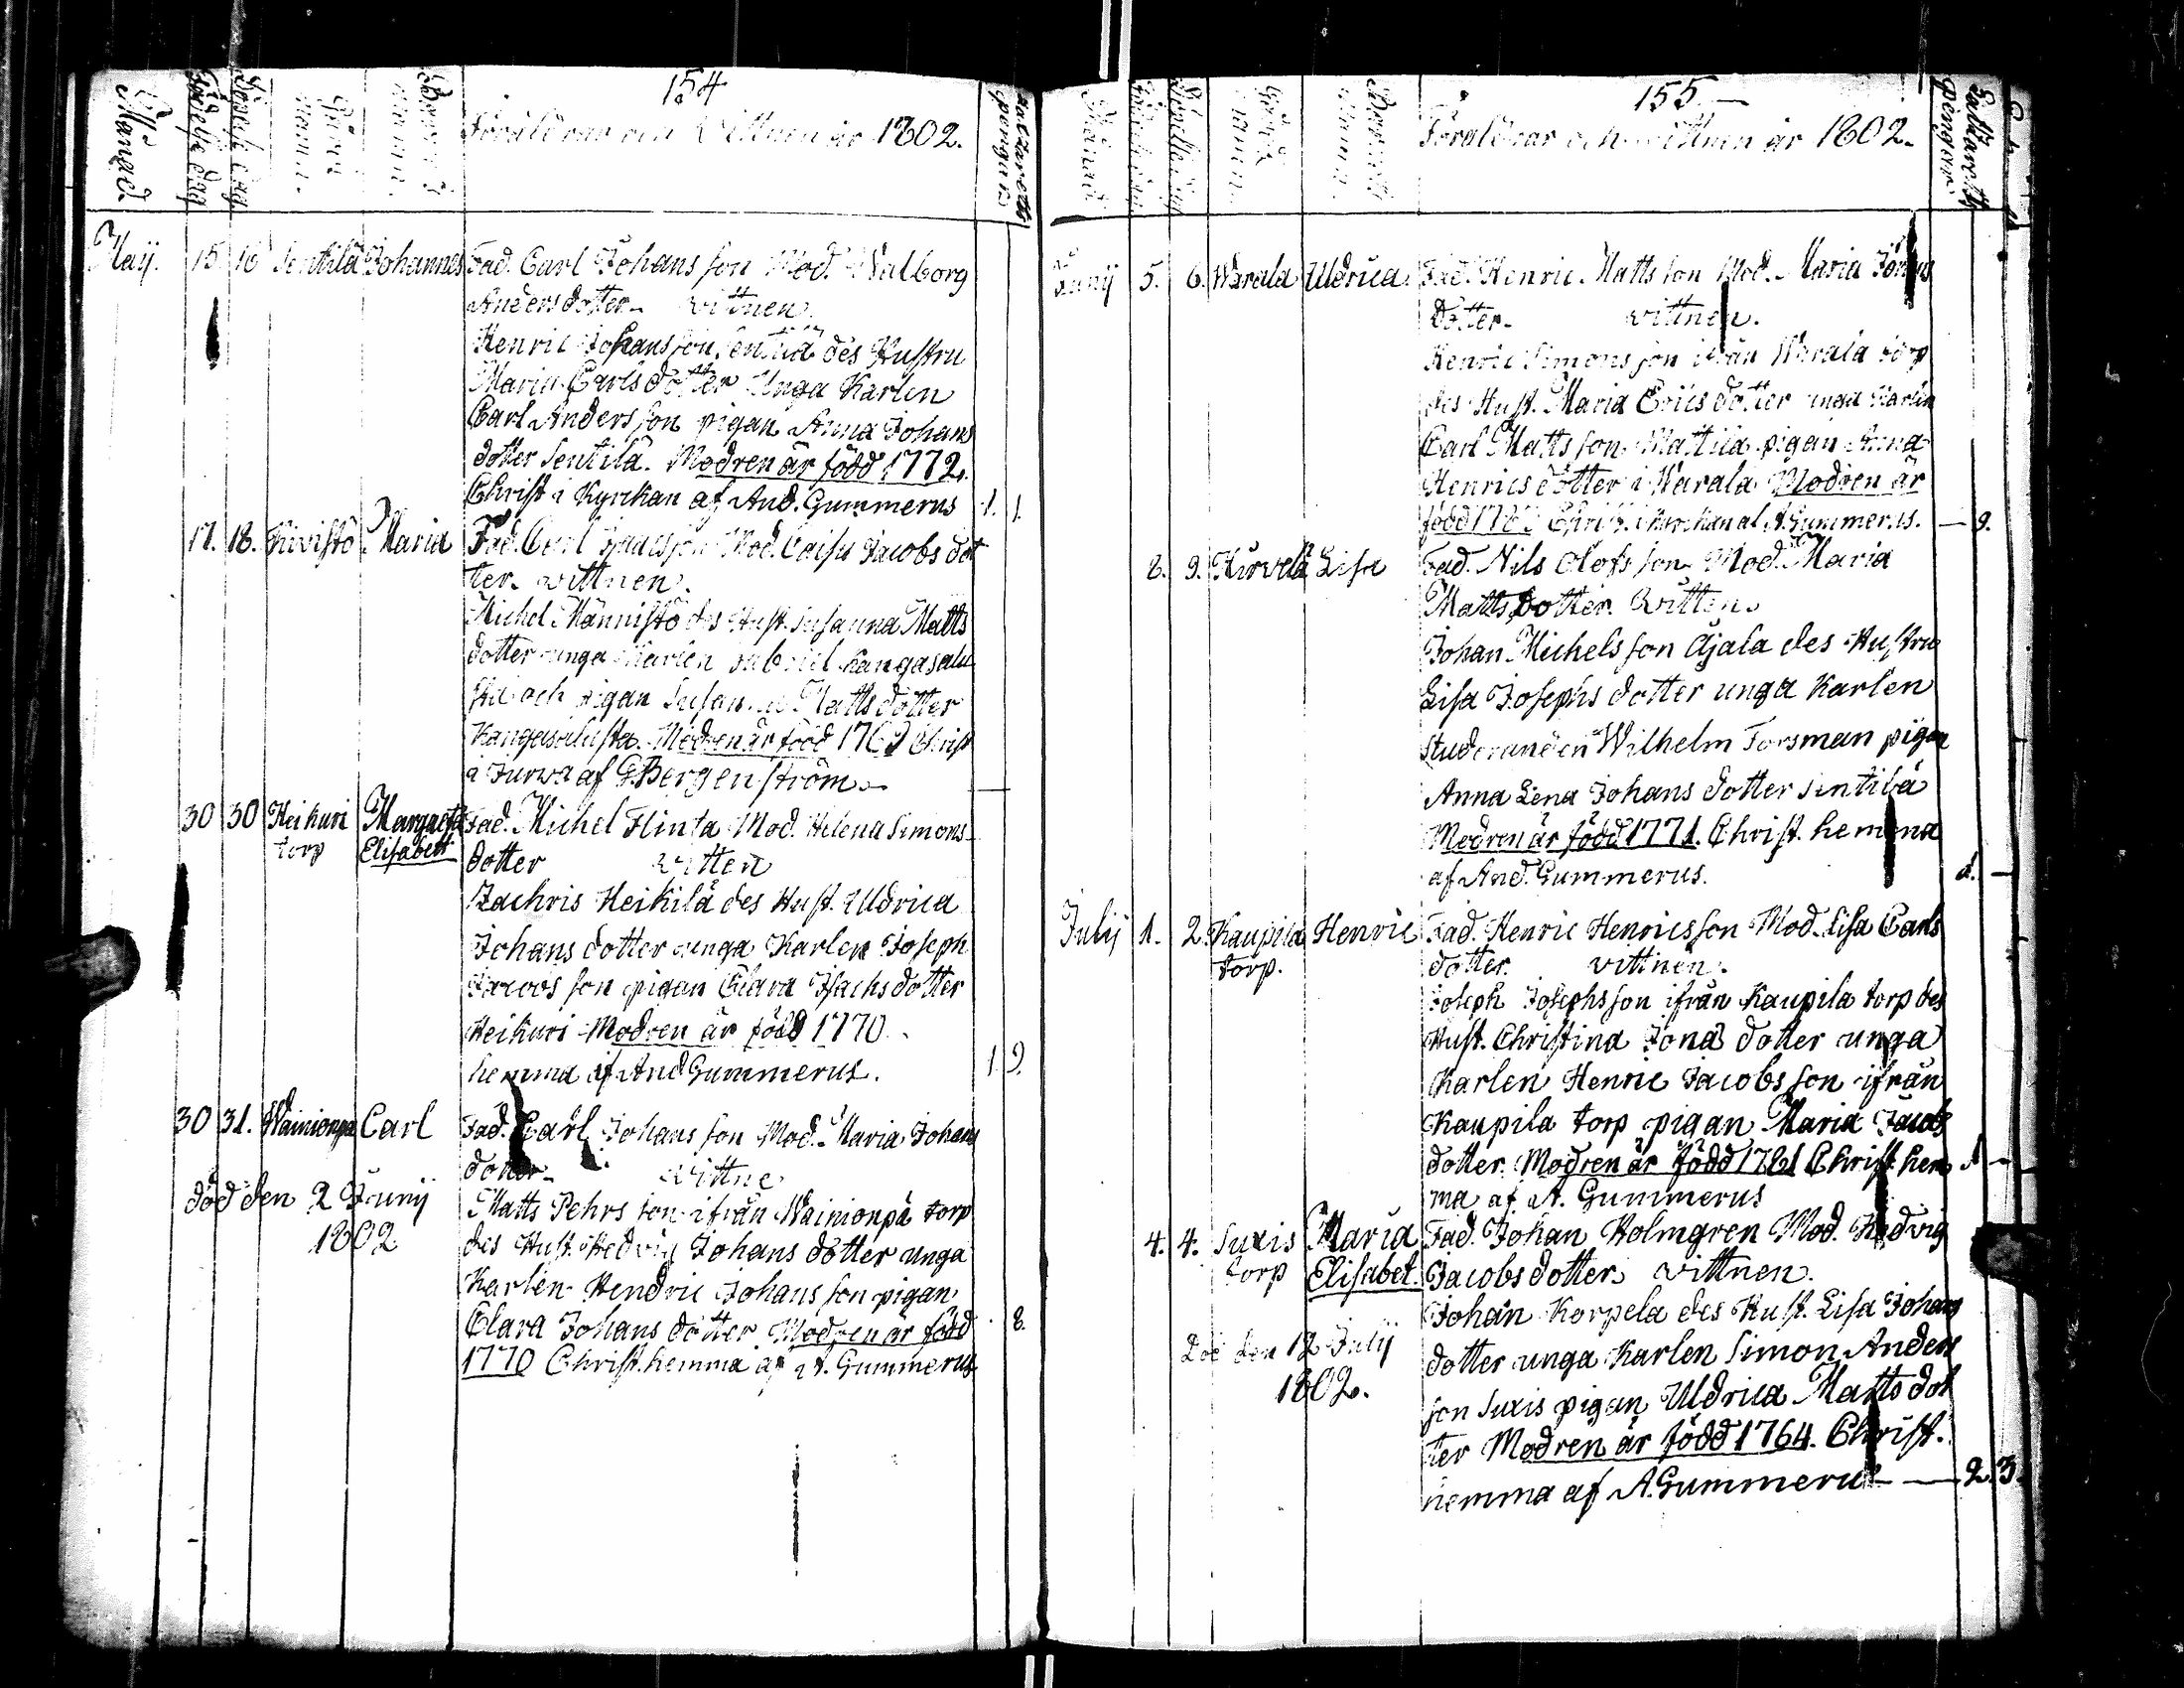 154
Månad.
Födelse dag
Döpelse dag.
Gårds namn.
Barnens namn.
Föräldrar och Vittnen år 1802.
pengar
Maij. 15 16 Sentilä Johannes Fad. Carl Johans son Mod. Walborg
Anders dotter. vittnen.
Henric Johans son Sentilä des Hustru
Maria Carls dotter Unga Karlen
Carl Anders son pigan Anna Johans
dotter Sentilä. Modren är född 1772.
Christ i Kyrckan af And. Gummerus 1. 1.
17. 18. Kivistö Maria Fad. Carl Isaacs son Mod. Caisa Jacobs dot
ter. vittnen.
Michel Männistö des Hust. Susanna Matts
dotter unga Karlen Gabriel Kangasalu
sta och pigan Susanna Matts dotter
Kangasalusta. Modren är född Christ
i Turwa af G. Bergenström.
30 30 Heikuri torp Margaeta Elisabett Fad. Michel Flinta Mod. Helena Simons
dotter vitten
Zachris Heikilä des Hust. Uldrica
Johans dotter unga Karlen Joseph
Jacobs son pigan Clara Isachs dotter
Heikuri Modren är född 1770.
hemma af And Gummerus. 1 9.
30 31. Wainionpä Carl Fad. Carl Johans son Mod. Maria Johans
dotter. vittne
död den 2 Junij
1802
Matts Pehrs son ifrån Wainionpä torp
des Hust. Hedvig Johans dotter unga
Karlen Hendric Johans son pigan
Clara Johans dotter Modren är född 8.
1770 Christ. hemma af A. Gummerus
155
Månad
Gårds namn.
Föräldrar och vittnen år 1802.
pengar
Junij 5. 6. Warala Uldrica. Fad. Henric Matts son Mod. Maria
dotter. vittnen.
Henric Simons son ifrån Warala torp
des Hust. Maria Erics dotter unga Karlen
Carl Matts son Mattila pigan Anna
Henrics dotter i Warala Modren är
född Christ. i Kyrckan af A. Gummerus. — 9.
8. 9. Hirvelä Lisa Fad. Nils Olofs son Mod. Maria
Matts Dotter. vitten.
Johan Michels son Äjälä des Hustru
Lisa Josephs dotter unga Karlen
Studeranden Wilhelm Forsman pigan
Anna Lena Johans dotter Sentilä
Modren är född 1771. Christ. hemma
af And. Gummerus. 1. —
Julij 1. 2. Kaupila torp. Henric Fad. Henric Henrics son Mod. Lisa Carls
dotter. vittnen.
Joseph Josephs son ifrån Kaupila torp des
Hust. Christina Jonas dotter unga
Karlen Henric Jacobs son ifrån
Kaupila torp pigan Maria Jacobs
dotter. Modren är född 1761 Christ hem 1 —
ma af A. Gummerus
4. 4. Suxis torp Maria Elisabet. Fad. Johan Holmgren Mod. Hedvig
Jacobs dotter vittnen.
Johan Korpela des Hust. Lisa Johans
död den 12 Julij
1802.
dotter unga Karlen Simon Anders
son Suxis pigan Uldrica Matts dot
ter Modren är född 1764. Christ.
hemma af A. Gummerus — 2. 3.